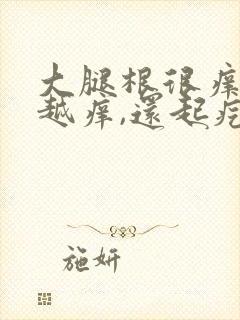 大腿根很痒
越痒,還起疙
施妍